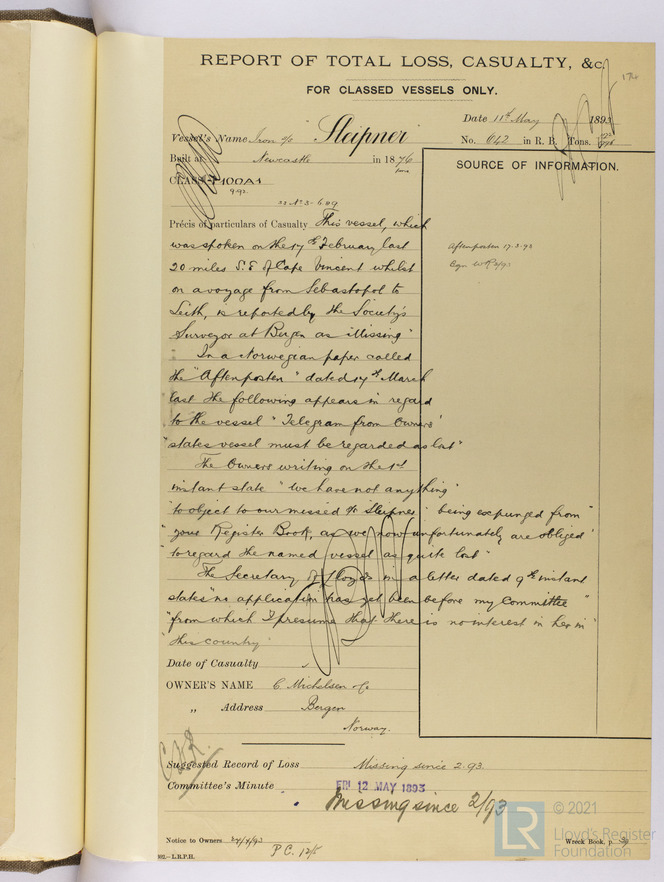 REPORT OF TOTAL LOSS, CASUALTY, &c.
FOR CLASSED VESSELS ONLY.
Date 11th May 1893
Vessel's Name Iron s/s "Sleipner"
No. 642 in R. B. Tons.
Built at Newcastle in 1876
CLASS 100A1
9.92
SOURCE OF INFORMATION.
Précis of particulars of Casualty This vessel, which
was spoken on the 17th February last
20 miles S.E of Cape Vincent whilst
on a voyage from Sebastopol to
Leith, is reported by the Society's
Surveyor at Bergen as "Missing"
In a Norwegian paper called
the "Aftenposten" dated 17th March
last the following appears in regard
to the vessel "Telegram from Owners
"states vessel must be regarded as lost"
The Owners writing on the 1st
instant state "we have not anything
"to object to our missed s/s Sleipner being expunged from
"your Register Book, as we now unfortunately are obliged
"to regard the named vessel as quite lost"
The Secretary of Lloyds in a letter dated 9th instant
states "no application has yet been before my Committee
"from which I presume that there is no interest in her in
"this country"
Aftenposten 17.3.93
Date of Casualty
OWNER'S NAME C. Michelsen & Co
„ Address Bergen
Norway.
Suggested Record of Loss Missing since 2.93.
Committee's Minute FRI 12 MAY 1893
Missing since 2/93
Notice to Owners 24/4/93
P.C. 12/5
Wreck Book, p.
802.—L.R.P.H.
LR
© 2021
Lloyd's Register
Foundation